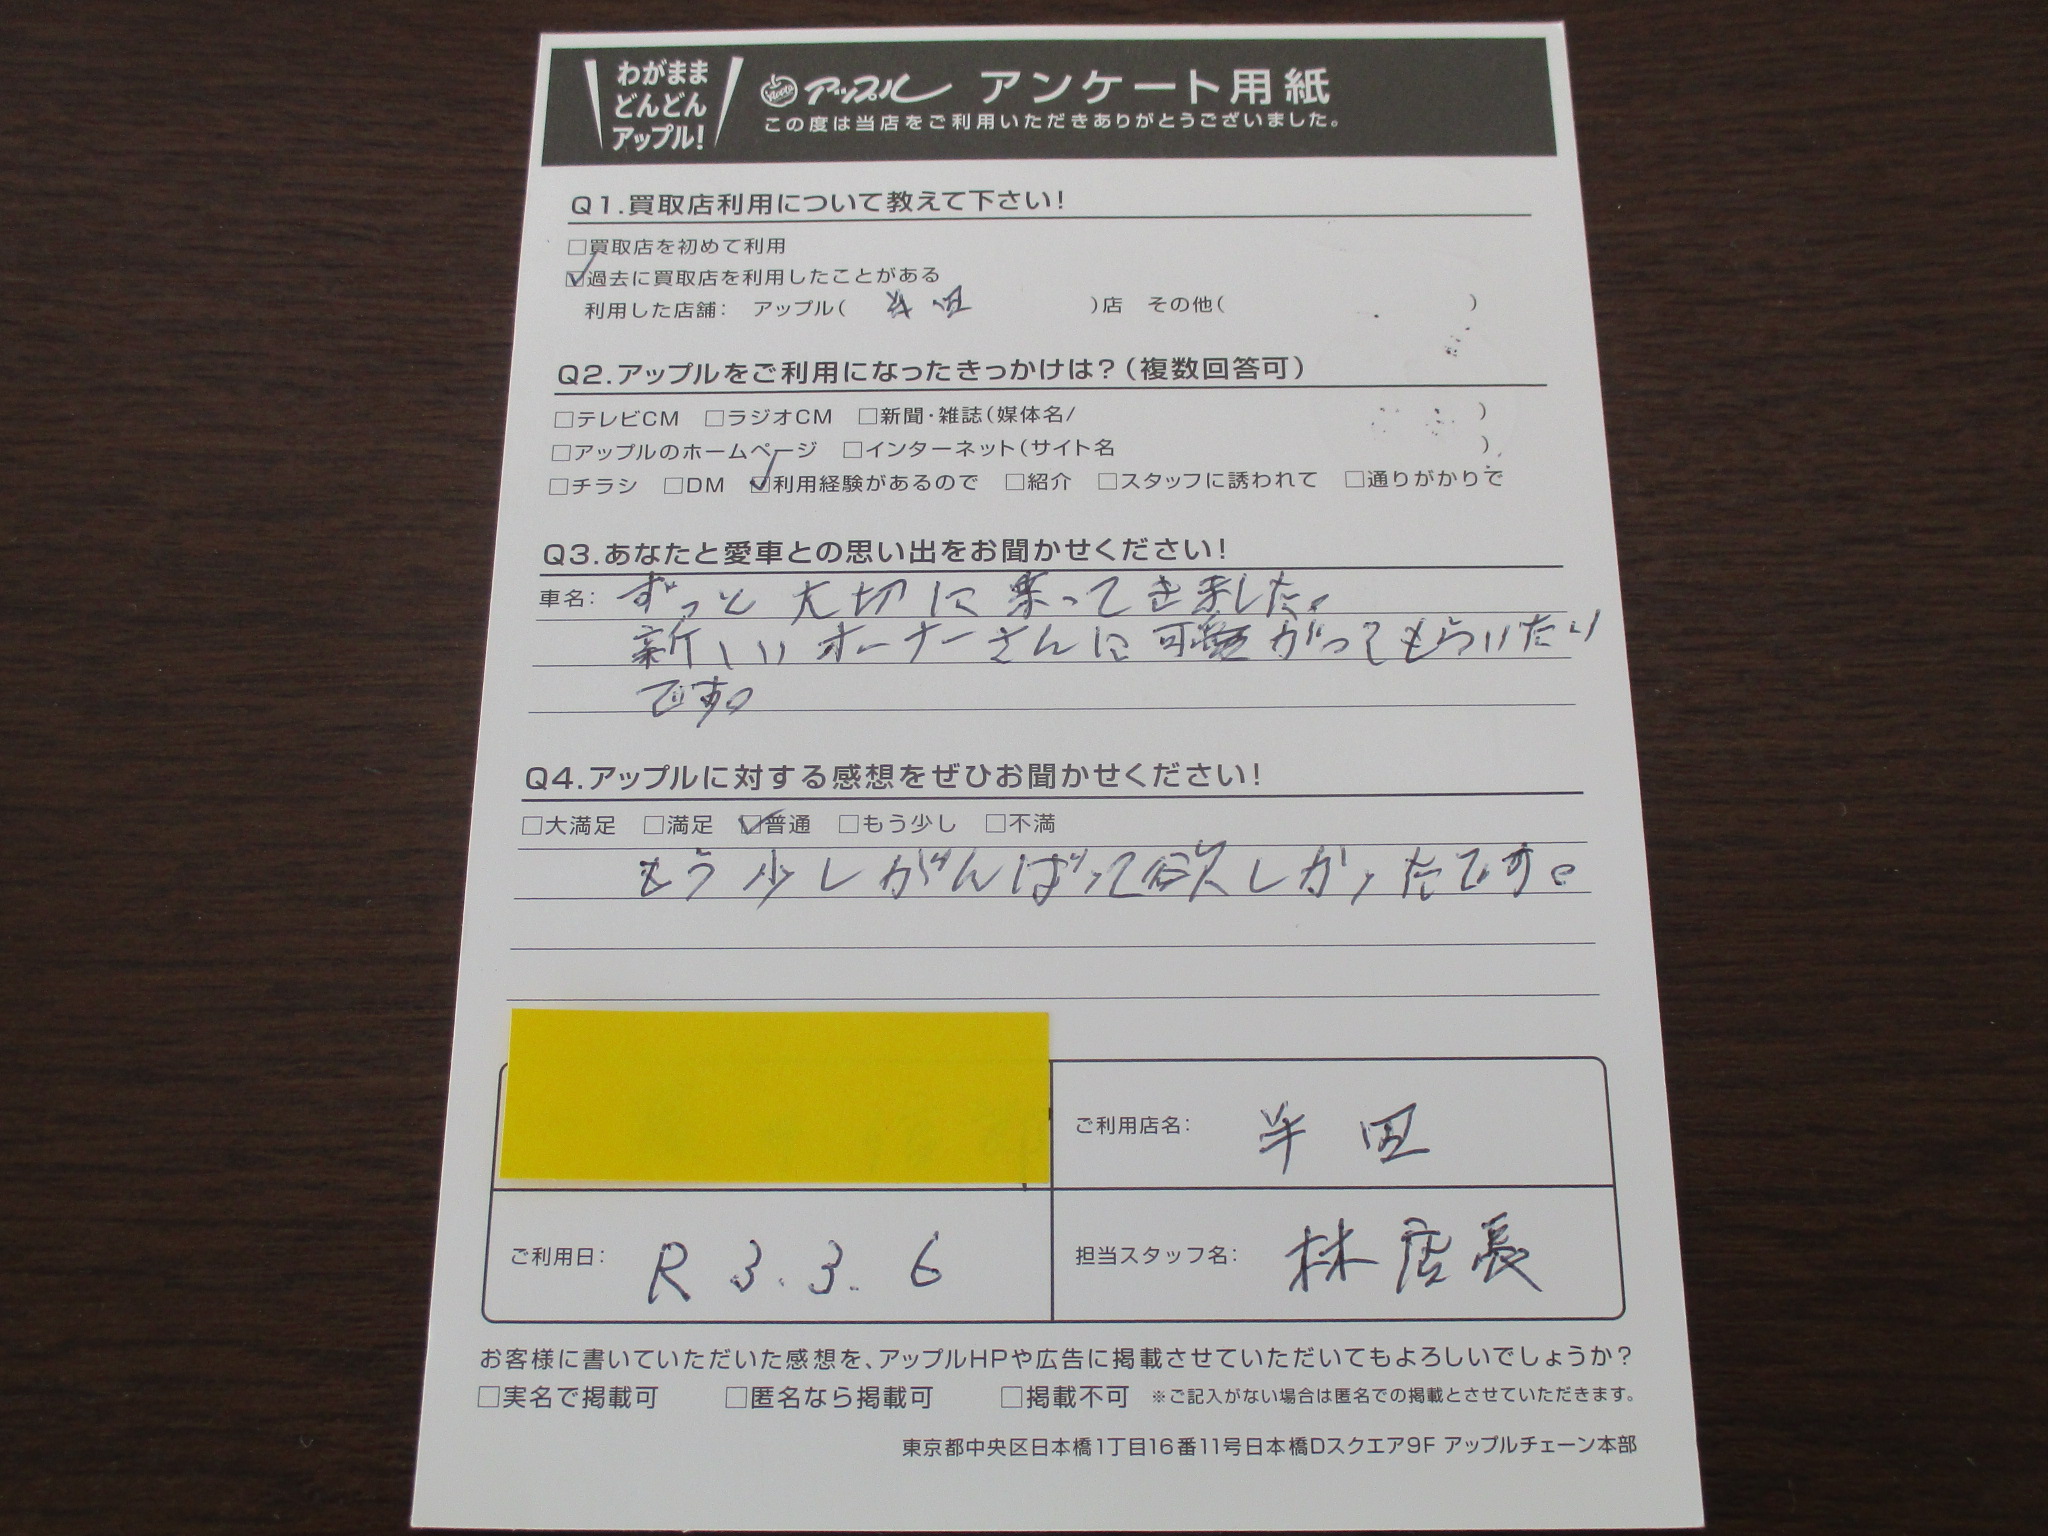 わがまま
どんどん
アップル!
アップル アンケート用紙
この度は当店をご利用いただきありがとうございました。
Q1.買取店利用について教えて下さい!
□買取店を初めて利用
☑過去に買取店を利用したことがある
利用した店舗: アップル( 半田 )店 その他( )
Q2.アップルをご利用になったきっかけは?(複数回答可)
□テレビCM □ラジオCM □新聞・雑誌(媒体名/ )
□アップルのホームページ □インターネット(サイト名 )
□チラシ □DM ☑利用経験があるので □紹介 □スタッフに誘われて □通りがかりで
Q3.あなたと愛車との思い出をお聞かせください!
車名: ずっと大切に乗ってきました。
新しいオーナーさんに可がってもらいたい
です。
Q4.アップルに対する感想をぜひお聞かせください!
□大満足 □満足 ☑普通 □もう少し □不満
もう少しがんばって欲しかったです。
ご利用店名: 半田
ご利用日: R 3.3.6
担当スタッフ名: 林店長
お客様に書いていただいた感想を、アップルHPや広告に掲載させていただいてもよろしいでしょうか?
□実名で掲載可 □匿名なら掲載可 □掲載不可 ※ご記入がない場合は匿名での掲載とさせていただきます。
東京都中央区日本橋1丁目16番11号日本橋Dスクエア9F アップルチェーン本部